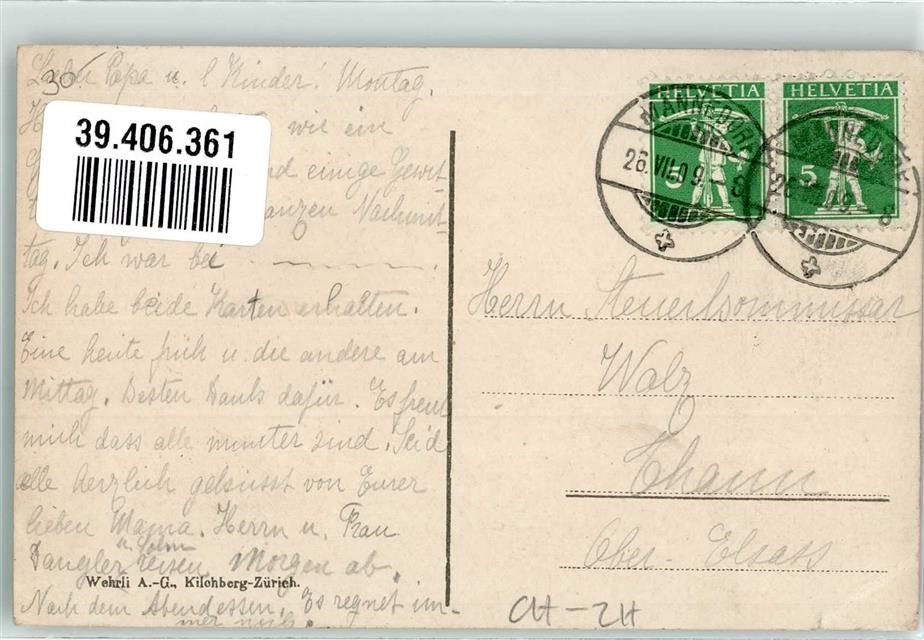 Lieber Papa u. l Kinder! Montag.
30
39.406.361
wir ein
einige Gewit
ganzen Nachmit-
tag. Ich war bei
Ich habe beide Karten erhalten.
Eine heute früh u. die andere am
Mittag. Besten Dank dafür. Es freut
mich dass alle munter sind. Seid
alle herzlich geküsst von Eurer
lieben Mama. Herrn u. Frau
Dangler u. Sohn reisen Morgen ab.
Wehrli A.-G., Kilchberg-Zürich.
Nach dem Abendessen. Es regnet im-
mer noch.
HELVETIA
5
HELVETIA
5
MÄNNEDORF
26.VII.09.-8
Herrn Steuerkommissar
Walz
Thann
Ober-Elsass
CH-ZH